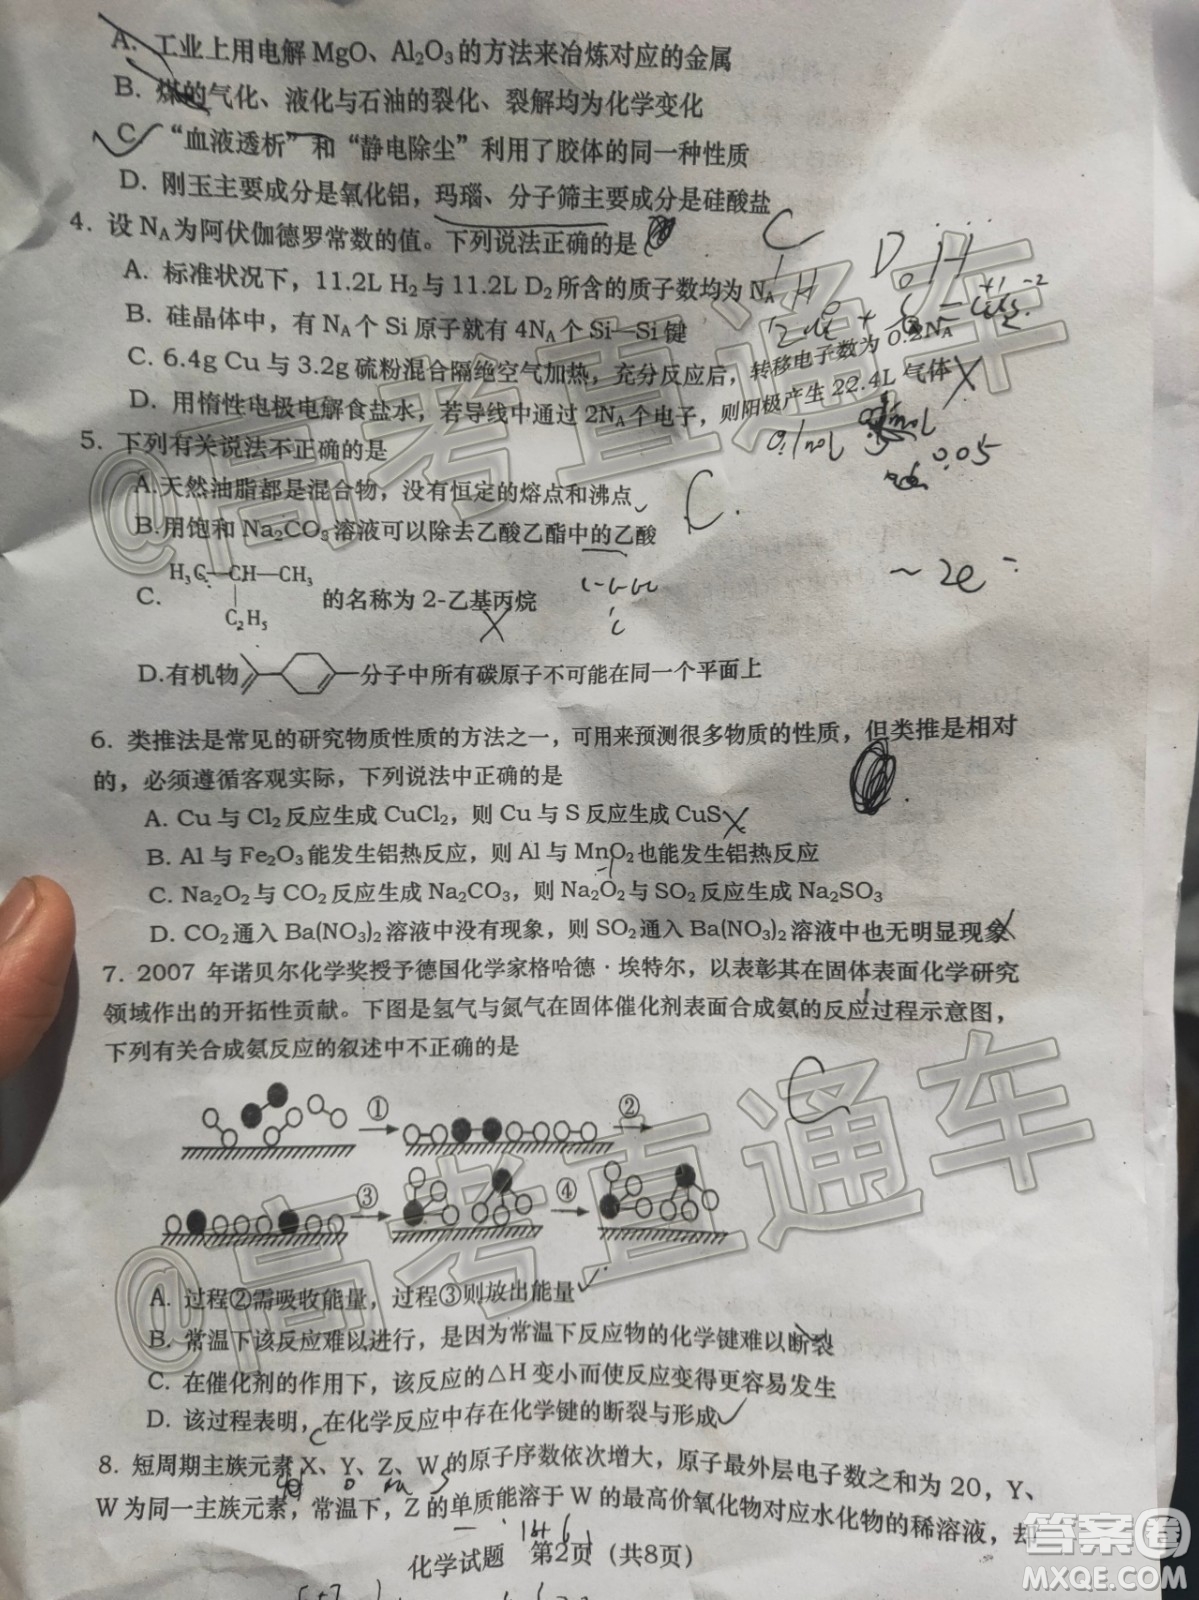 A. 工业上用电解MgO、Al₂O₃的方法来冶炼对应的金属
B. 煤的气化、液化与石油的裂化、裂解均为化学变化
C. “血液透析”和“静电除尘”利用了胶体的同一种性质
D. 刚玉主要成分是氧化铝，玛瑙、分子筛主要成分是硅酸盐
4. 设 N_A 为阿伏伽德罗常数的值。下列说法正确的是
A. 标准状况下，11.2L H₂与 11.2L D₂所含的质子数均为 N_A
B. 硅晶体中，有 N_A 个 Si 原子就有 4N_A 个 Si—Si 键
C. 6.4g Cu 与 3.2g 硫粉混合隔绝空气加热，充分反应后，转移电子数为 0.2N_A
D. 用惰性电极电解食盐水，若导线中通过 2N_A 个电子，则阳极产生 22.4L 气体
5. 下列有关说法不正确的是
A.天然油脂都是混合物，没有恒定的熔点和沸点
B.用饱和 Na₂CO₃溶液可以除去乙酸乙酯中的乙酸
H₃C—CH—CH₃
C. 的名称为 2-乙基丙烷
C₂H₅
C.
~2e⁻
0.1mol
0.05
D.有机物 分子中所有碳原子不可能在同一个平面上
6. 类推法是常见的研究物质性质的方法之一，可用来预测很多物质的性质，但类推是相对
的，必须遵循客观实际，下列说法中正确的是
A. Cu 与 Cl₂反应生成 CuCl₂，则 Cu 与 S 反应生成 CuS
B. Al 与 Fe₂O₃能发生铝热反应，则 Al 与 MnO₂也能发生铝热反应
C. Na₂O₂与 CO₂反应生成 Na₂CO₃，则 Na₂O₂与 SO₂反应生成 Na₂SO₃
D. CO₂通入 Ba(NO₃)₂溶液中没有现象，则 SO₂通入 Ba(NO₃)₂溶液中也无明显现象
7. 2007 年诺贝尔化学奖授予德国化学家格哈德·埃特尔，以表彰其在固体表面化学研究
领域作出的开拓性贡献。下图是氢气与氮气在固体催化剂表面合成氨的反应过程示意图，
下列有关合成氨反应的叙述中不正确的是
C
① ②
③ ④
A. 过程②需吸收能量，过程③则放出能量
B. 常温下该反应难以进行，是因为常温下反应物的化学键难以断裂
C. 在催化剂的作用下，该反应的△H 变小而使反应变得更容易发生
D. 该过程表明，在化学反应中存在化学键的断裂与形成
8. 短周期主族元素 X、Y、Z、W 的原子序数依次增大，原子最外层电子数之和为 20，Y、
W 为同一主族元素，常温下，Z 的单质能溶于 W 的最高价氧化物对应水化物的稀溶液，却
化学试题 第2页（共8页）
@高考直通车
@高考直通车
答案圈
MXQE.COM